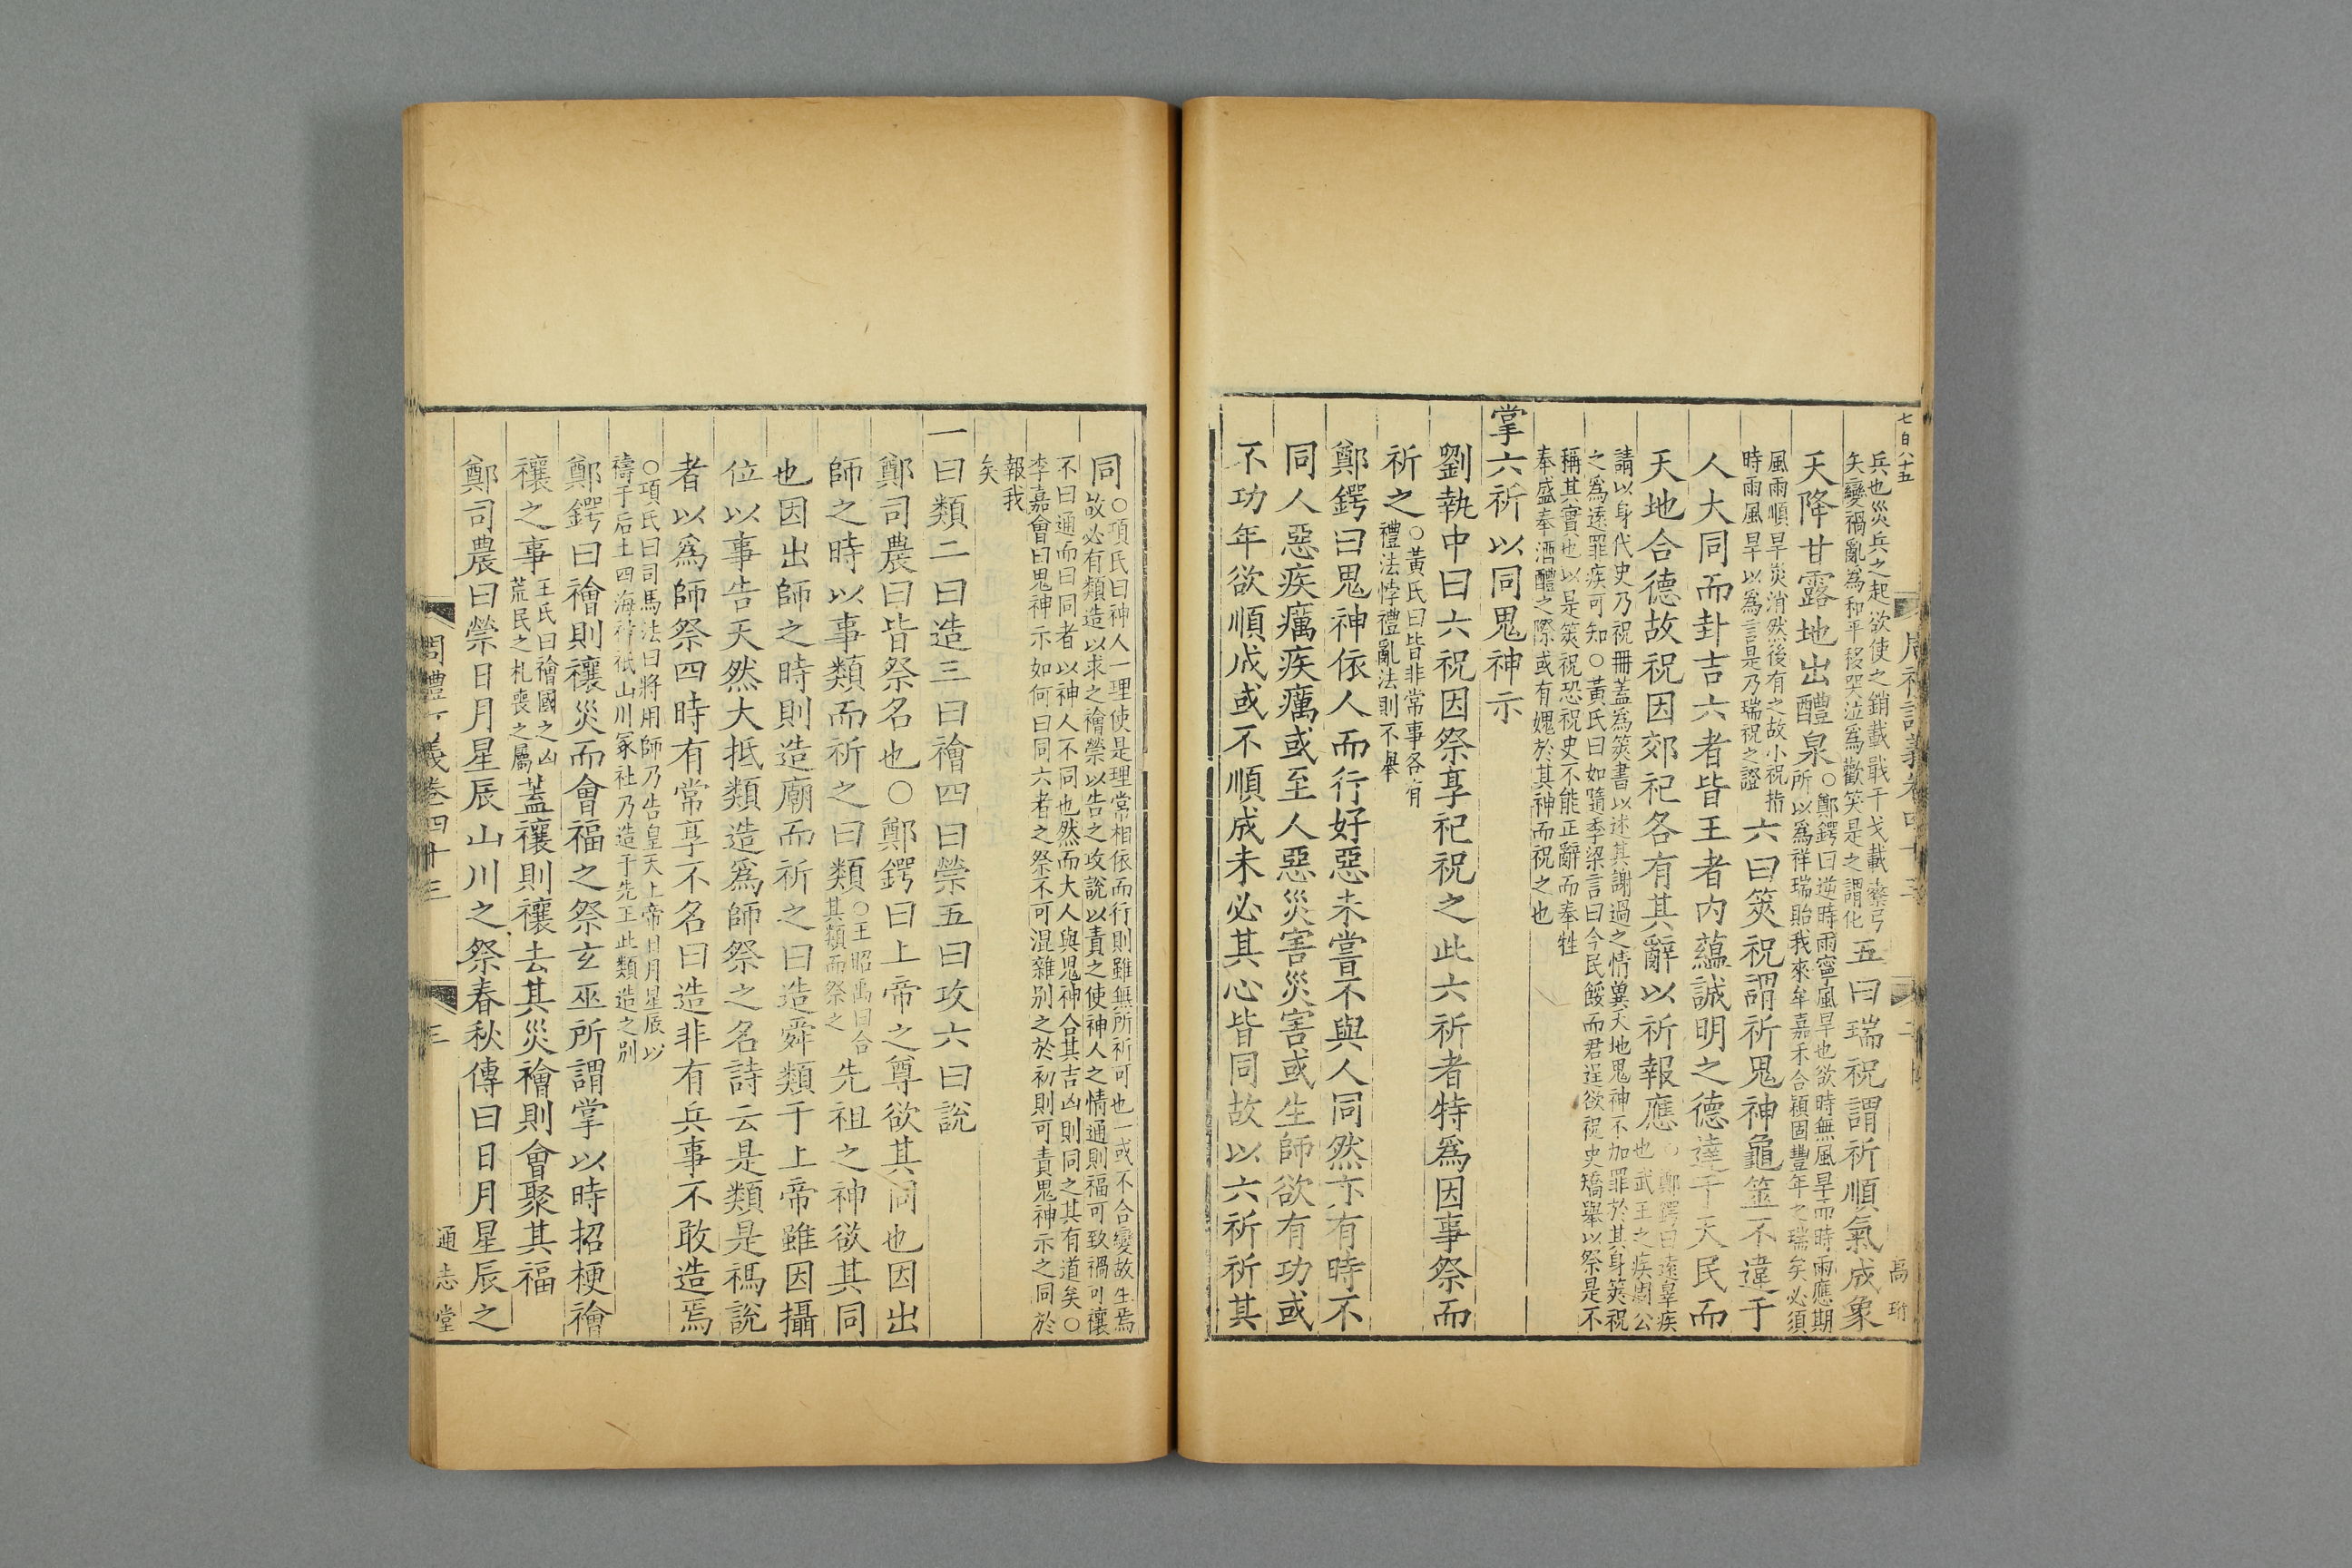 七百八十五
周禮訂義卷四十三
高珩
兵也災兵之起欲使之銷載戢干戈載櫜弓
矢變禍亂為和平移哭泣為歡笑是之謂化
五曰瑞祝謂祈順氣成象
天降甘露地出醴泉
○鄭鍔曰逆時雨寧風旱也欲時無風旱而時雨應期
所以為祥瑞貽我來牟嘉禾合穎固豐年之瑞矣必須
風雨順旱災消然後有之故小祝指
時雨風旱以為言是乃瑞祝之證
六曰筴祝謂祈鬼神龜筮不違于
人大同而卦吉六者皆王者內蘊誠明之德達于天民而
天地合德故祝因郊祀各有其辭以祈報應
○鄭鍔曰遠辠疾
也武王之疾周公
請以身代史乃祝冊蓋為筴書以述其謝過之情兾天地鬼神不加罪於其身筴祝
之為遠罪疾可知○黃氏曰如隨季梁言曰今民餒而君逞欲祝史矯舉以祭是不
稱其實也以是筴祝恐祝史不能正辭而奉牲
奉盛奉酒醴之際或有媿於其神而祝之也
掌六祈以同鬼神示
劉執中曰六祝因祭享祀祝之此六祈者特為因事祭而
祈之
○黃氏曰皆非常事各有
禮法悖禮亂法則不舉
鄭鍔曰鬼神依人而行好惡未嘗不與人同然亦有時不
同人惡疾癘疾癘或至人惡災害災害或生師欲有功或
不功年欲順成或不順成未必其心皆同故以六祈祈其
同
○項氏曰神人一理使是理常相依而行則雖無所祈可也一或不合變故生焉
故必有類造以求之禬禜以告之攻說以責之使神人之情通則福可致禍可禳
不曰通而曰同者以神人不同也然而大人與鬼神合其吉凶則同之其有道矣○
李嘉會曰鬼神示如何曰同六者之祭不可混雜别之於初則可責鬼神示之同於
報我
矣
一曰類二曰造三曰禬四曰禜五曰攻六曰說
鄭司農曰皆祭名也○鄭鍔曰上帝之尊欲其同也因出
師之時以事類而祈之曰類
○王昭禹曰合
其類而祭之
先祖之神欲其同
也因出師之時則造廟而祈之曰造舜類于上帝雖因攝
位以事告天然大抵類造為師祭之名詩云是類是禡說
者以為師祭四時有常享不名曰造非有兵事不敢造焉
○項氏曰司馬法曰將用師乃告皇天上帝日月星辰以
禱于后土四海神祇山川冢社乃造于先王此類造之别
鄭鍔曰禬則禳災而會福之祭玄巫所謂掌以時招梗禬
禳之事
王氏曰禬國之凶
荒民之札喪之屬
蓋禳則禳去其災禬則會聚其福
鄭司農曰禜日月星辰山川之祭春秋傳曰日月星辰之
周禮訂義卷四十三
三
通志堂